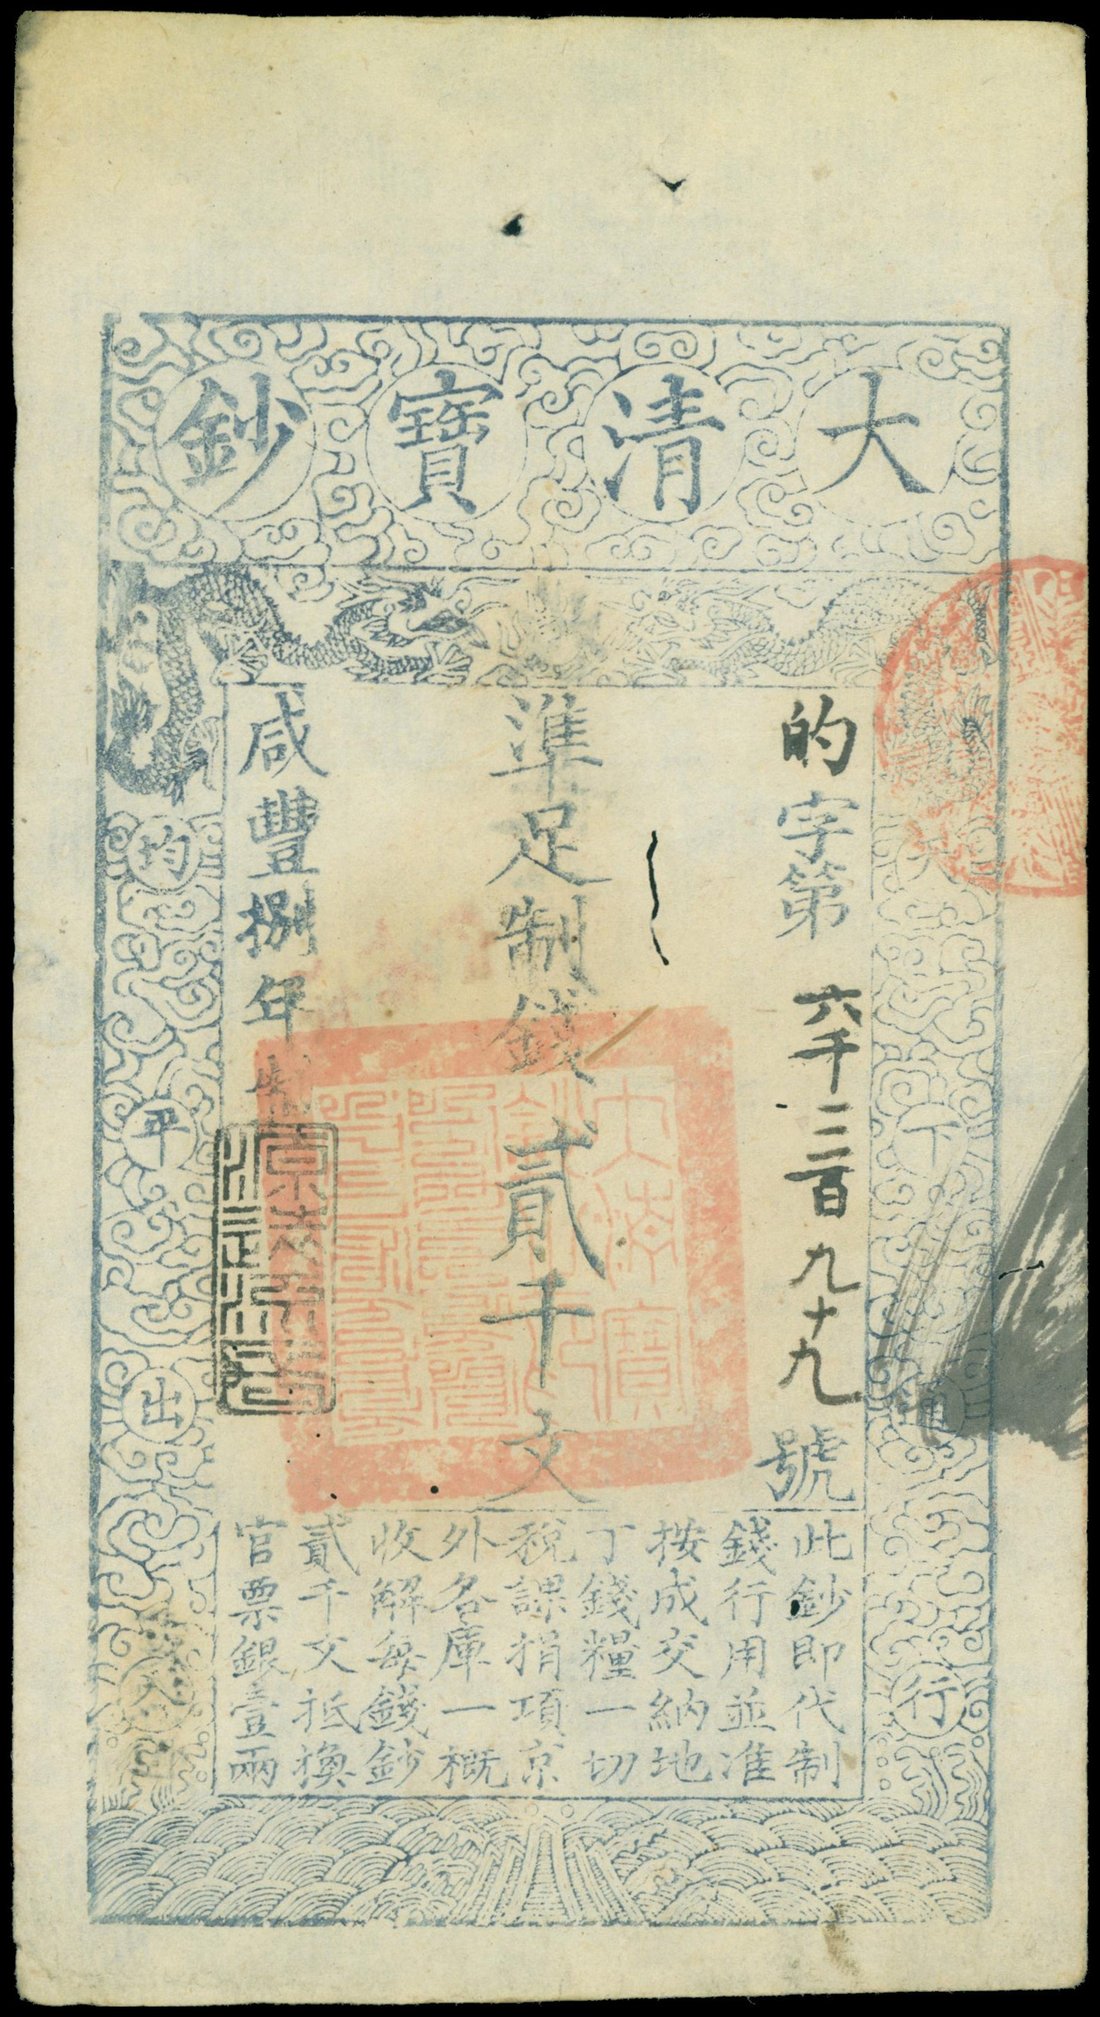 大清寶鈔
的字第六千三百九十九號
準足制錢貳千文
咸豐捌年製
天下通行
均平出入
此鈔即代制
錢行用並准
按成交納地
丁錢糧一切
稅課捐項京
外各庫一概
收解每錢鈔
貳千文抵換
官票銀壹兩
大清寶鈔之印